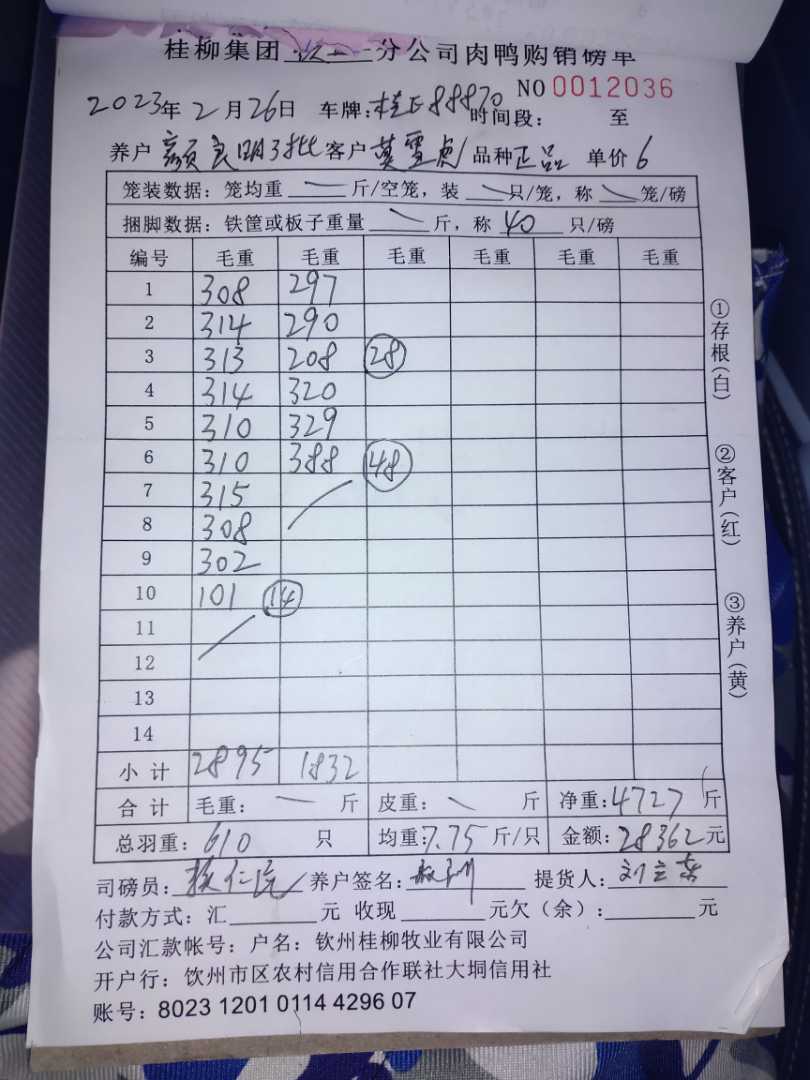 桂柳集团 分公司肉鸭购销磅单
NO 0012036
2023年2月26日 车牌:桂 88870 时间段: 至
养户 良明3批 客户 莫雪 品种 正品 单价 6
笼装数据: 笼均重 斤/空笼, 装 只/笼, 称 笼/磅
捆脚数据: 铁筐或板子重量 斤, 称 40 只/磅
编号 毛重 毛重 毛重 毛重 毛重 毛重
1 308 297
2 314 290
3 313 208 28
4 314 320
5 310 329
6 310 388 48
7 315
8 308
9 302
10 101 14
11
12
13
14
小计 2895 1832
合计 毛重: 斤 皮重: 斤 净重:4727 斤
总羽重: 610 只 均重:7.75 斤/只 金额:28362元
司磅员: 养户签名: 提货人:刘立
付款方式: 汇 元 收现 元欠(余): 元
公司汇款帐号: 户名: 钦州桂柳牧业有限公司
开户行: 钦州市区农村信用合作联社大垌信用社
账号: 8023 1201 0114 4296 07
①存根(白)
②客户(红)
③养户(黄)